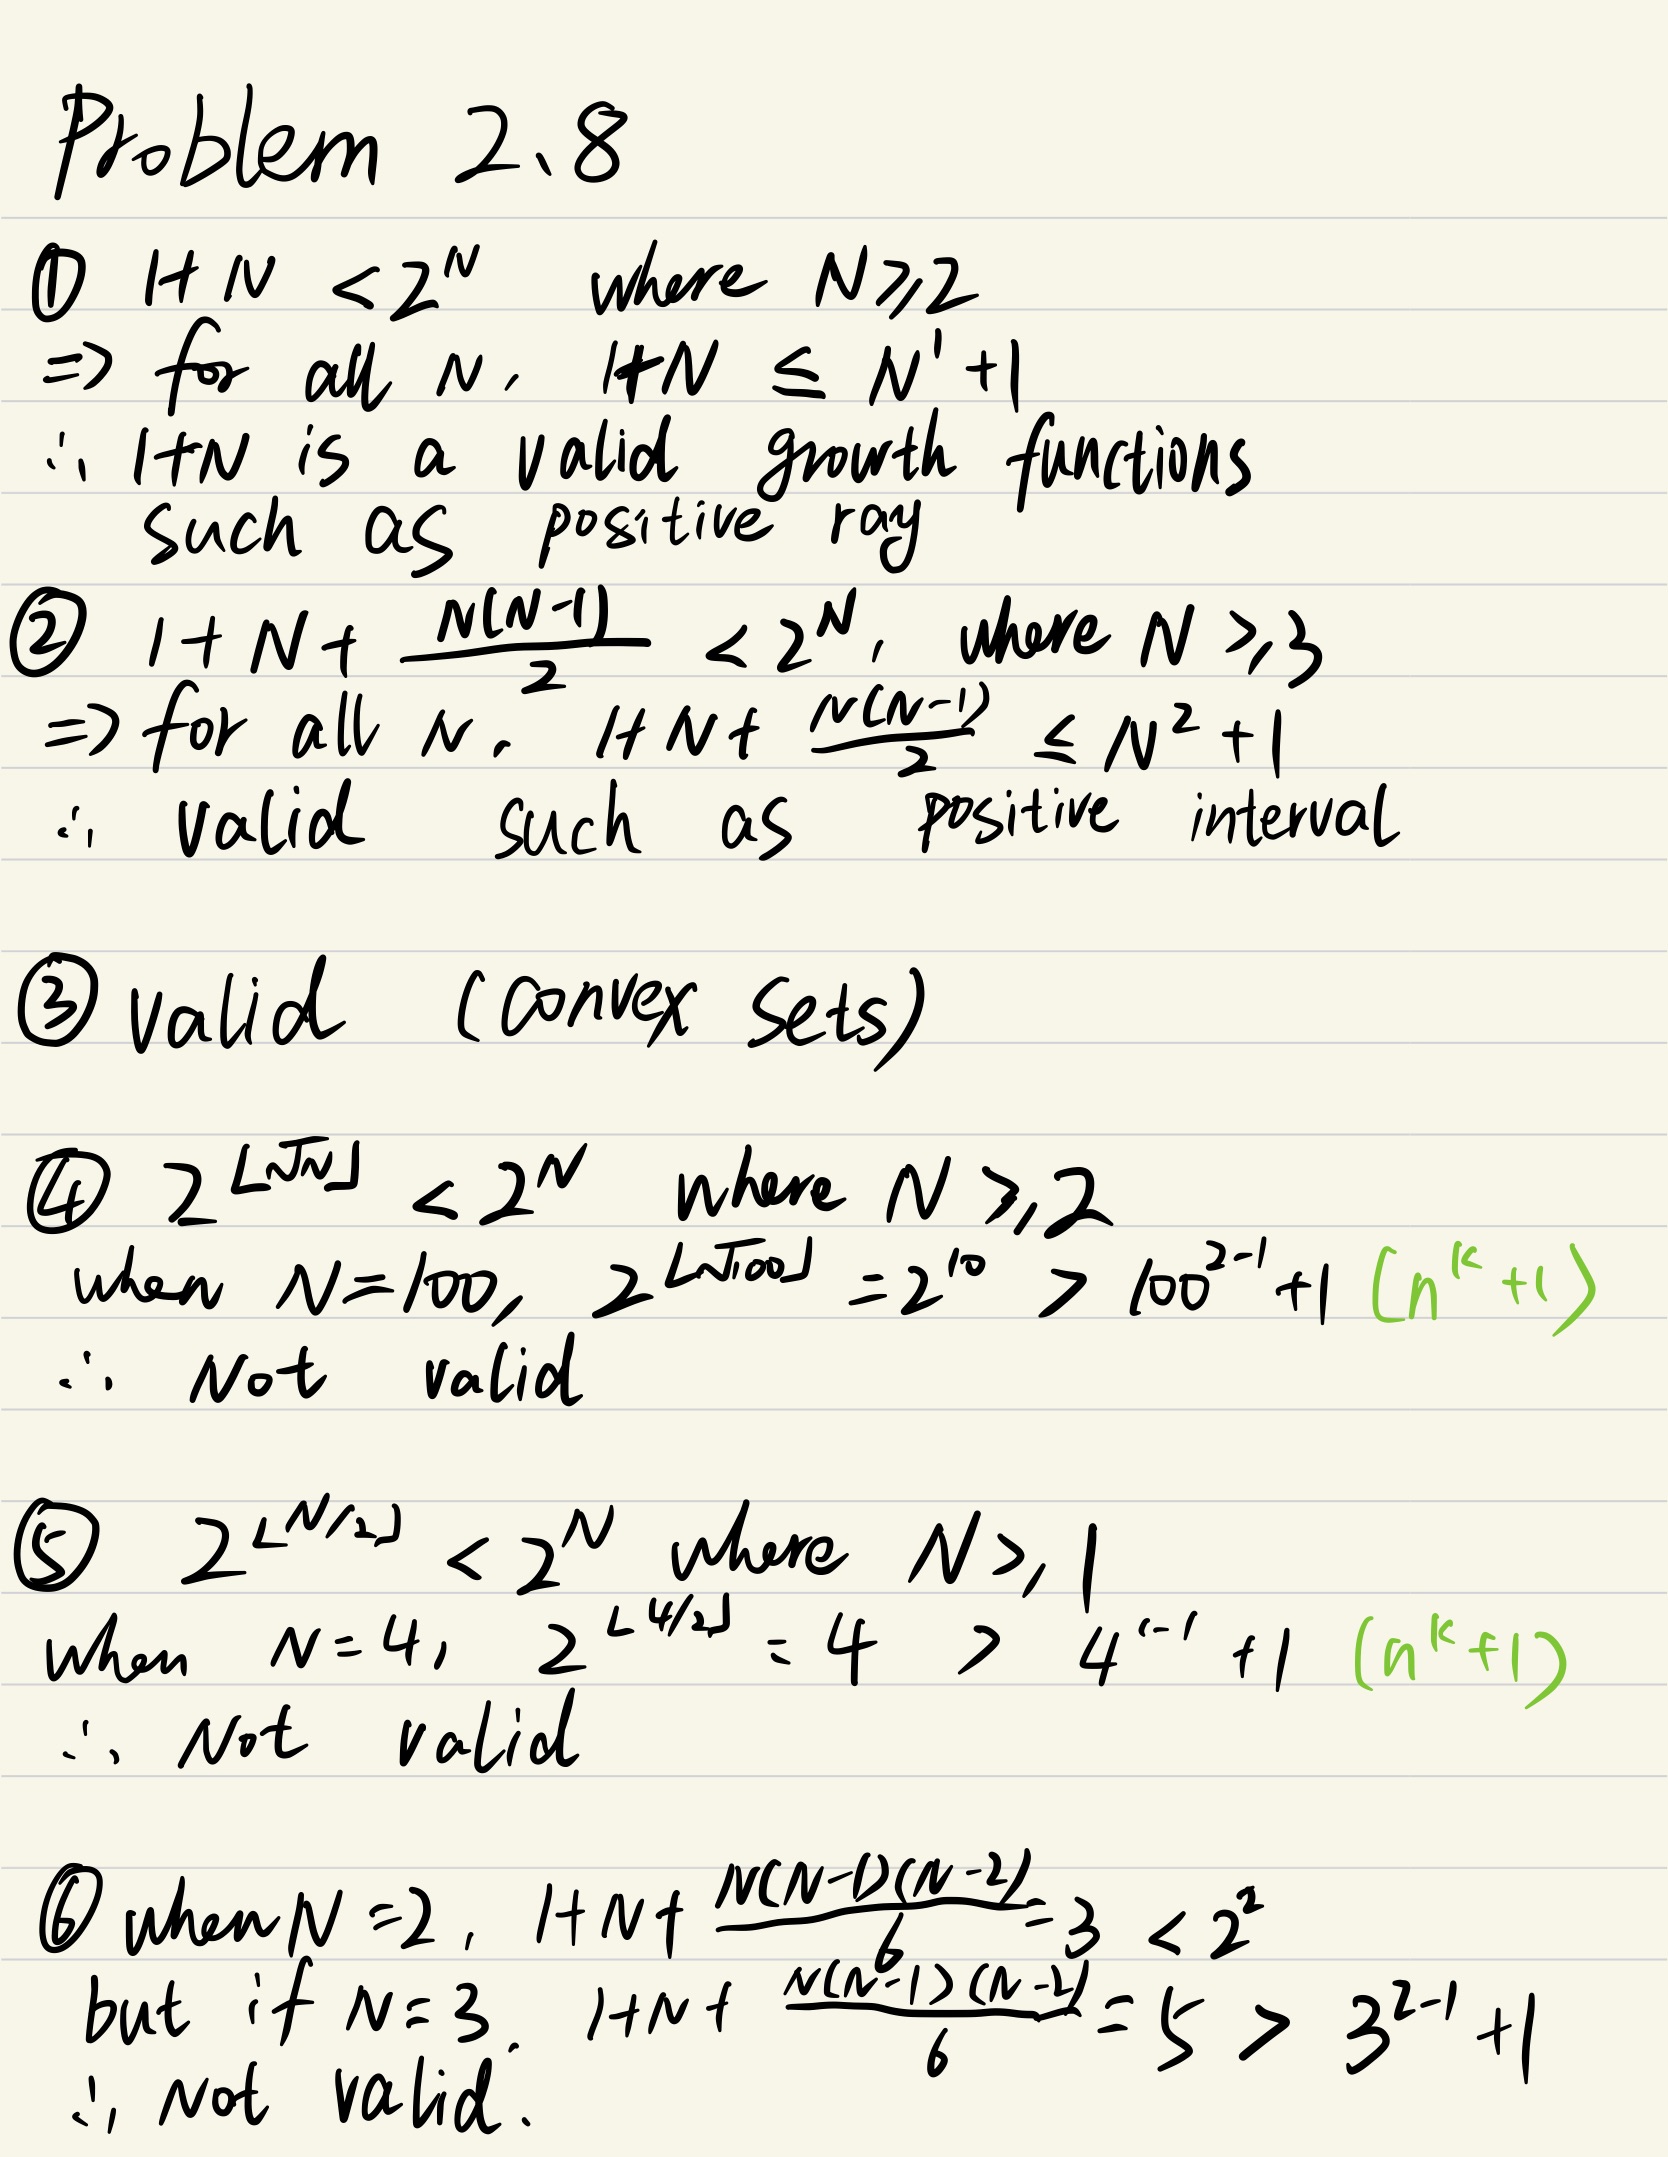 Problem 2.8
① 1+N < 2^N where N ≥ 2
⇒ for all N. 1+N ≤ N^1 + 1
∴ 1+N is a valid growth functions
such as positive ray
② 1 + N + N(N-1)/2 < 2^N, where N ≥ 3
⇒ for all N. 1+N+ N(N-1)/2 ≤ N^2 + 1
∴ valid such as positive interval
③ valid (convex sets)
④ 2^⌊√N⌋ < 2^N where N ≥ 2
when N=100, 2^⌊√100⌋ = 2^10 > 100^(2-1) + 1 (n^k + 1)
∴ Not valid
⑤ 2^⌊N/2⌋ < 2^N where N ≥ 1
when N=4, 2^⌊4/2⌋ = 4 > 4^(1-1) + 1 (n^k + 1)
∴ Not valid
⑥ when N=2, 1+N+ N(N-1)(N-2)/6 = 3 < 2^2
but if N=3. 1+N+ N(N-1)(N-2)/6 = 5 > 3^(2-1) + 1
∴ Not valid.